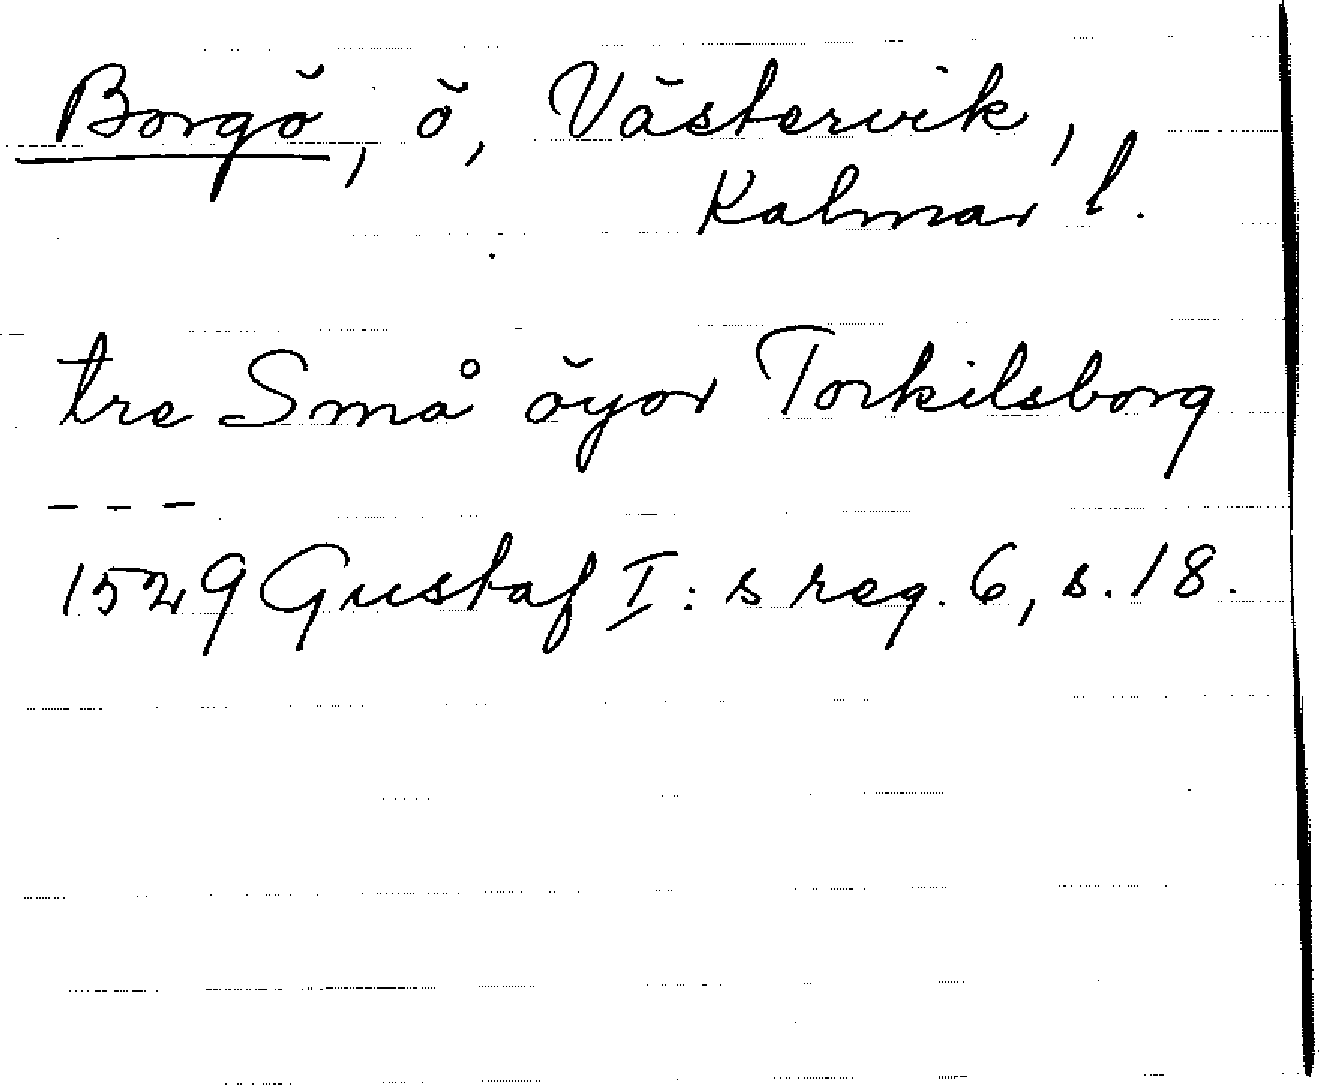 Borgö, ö, Västervik,
Kalmar l.
tre Små öyor Torkilsborg
- - -
1529 Gustaf I:s reg. 6, s. 18.